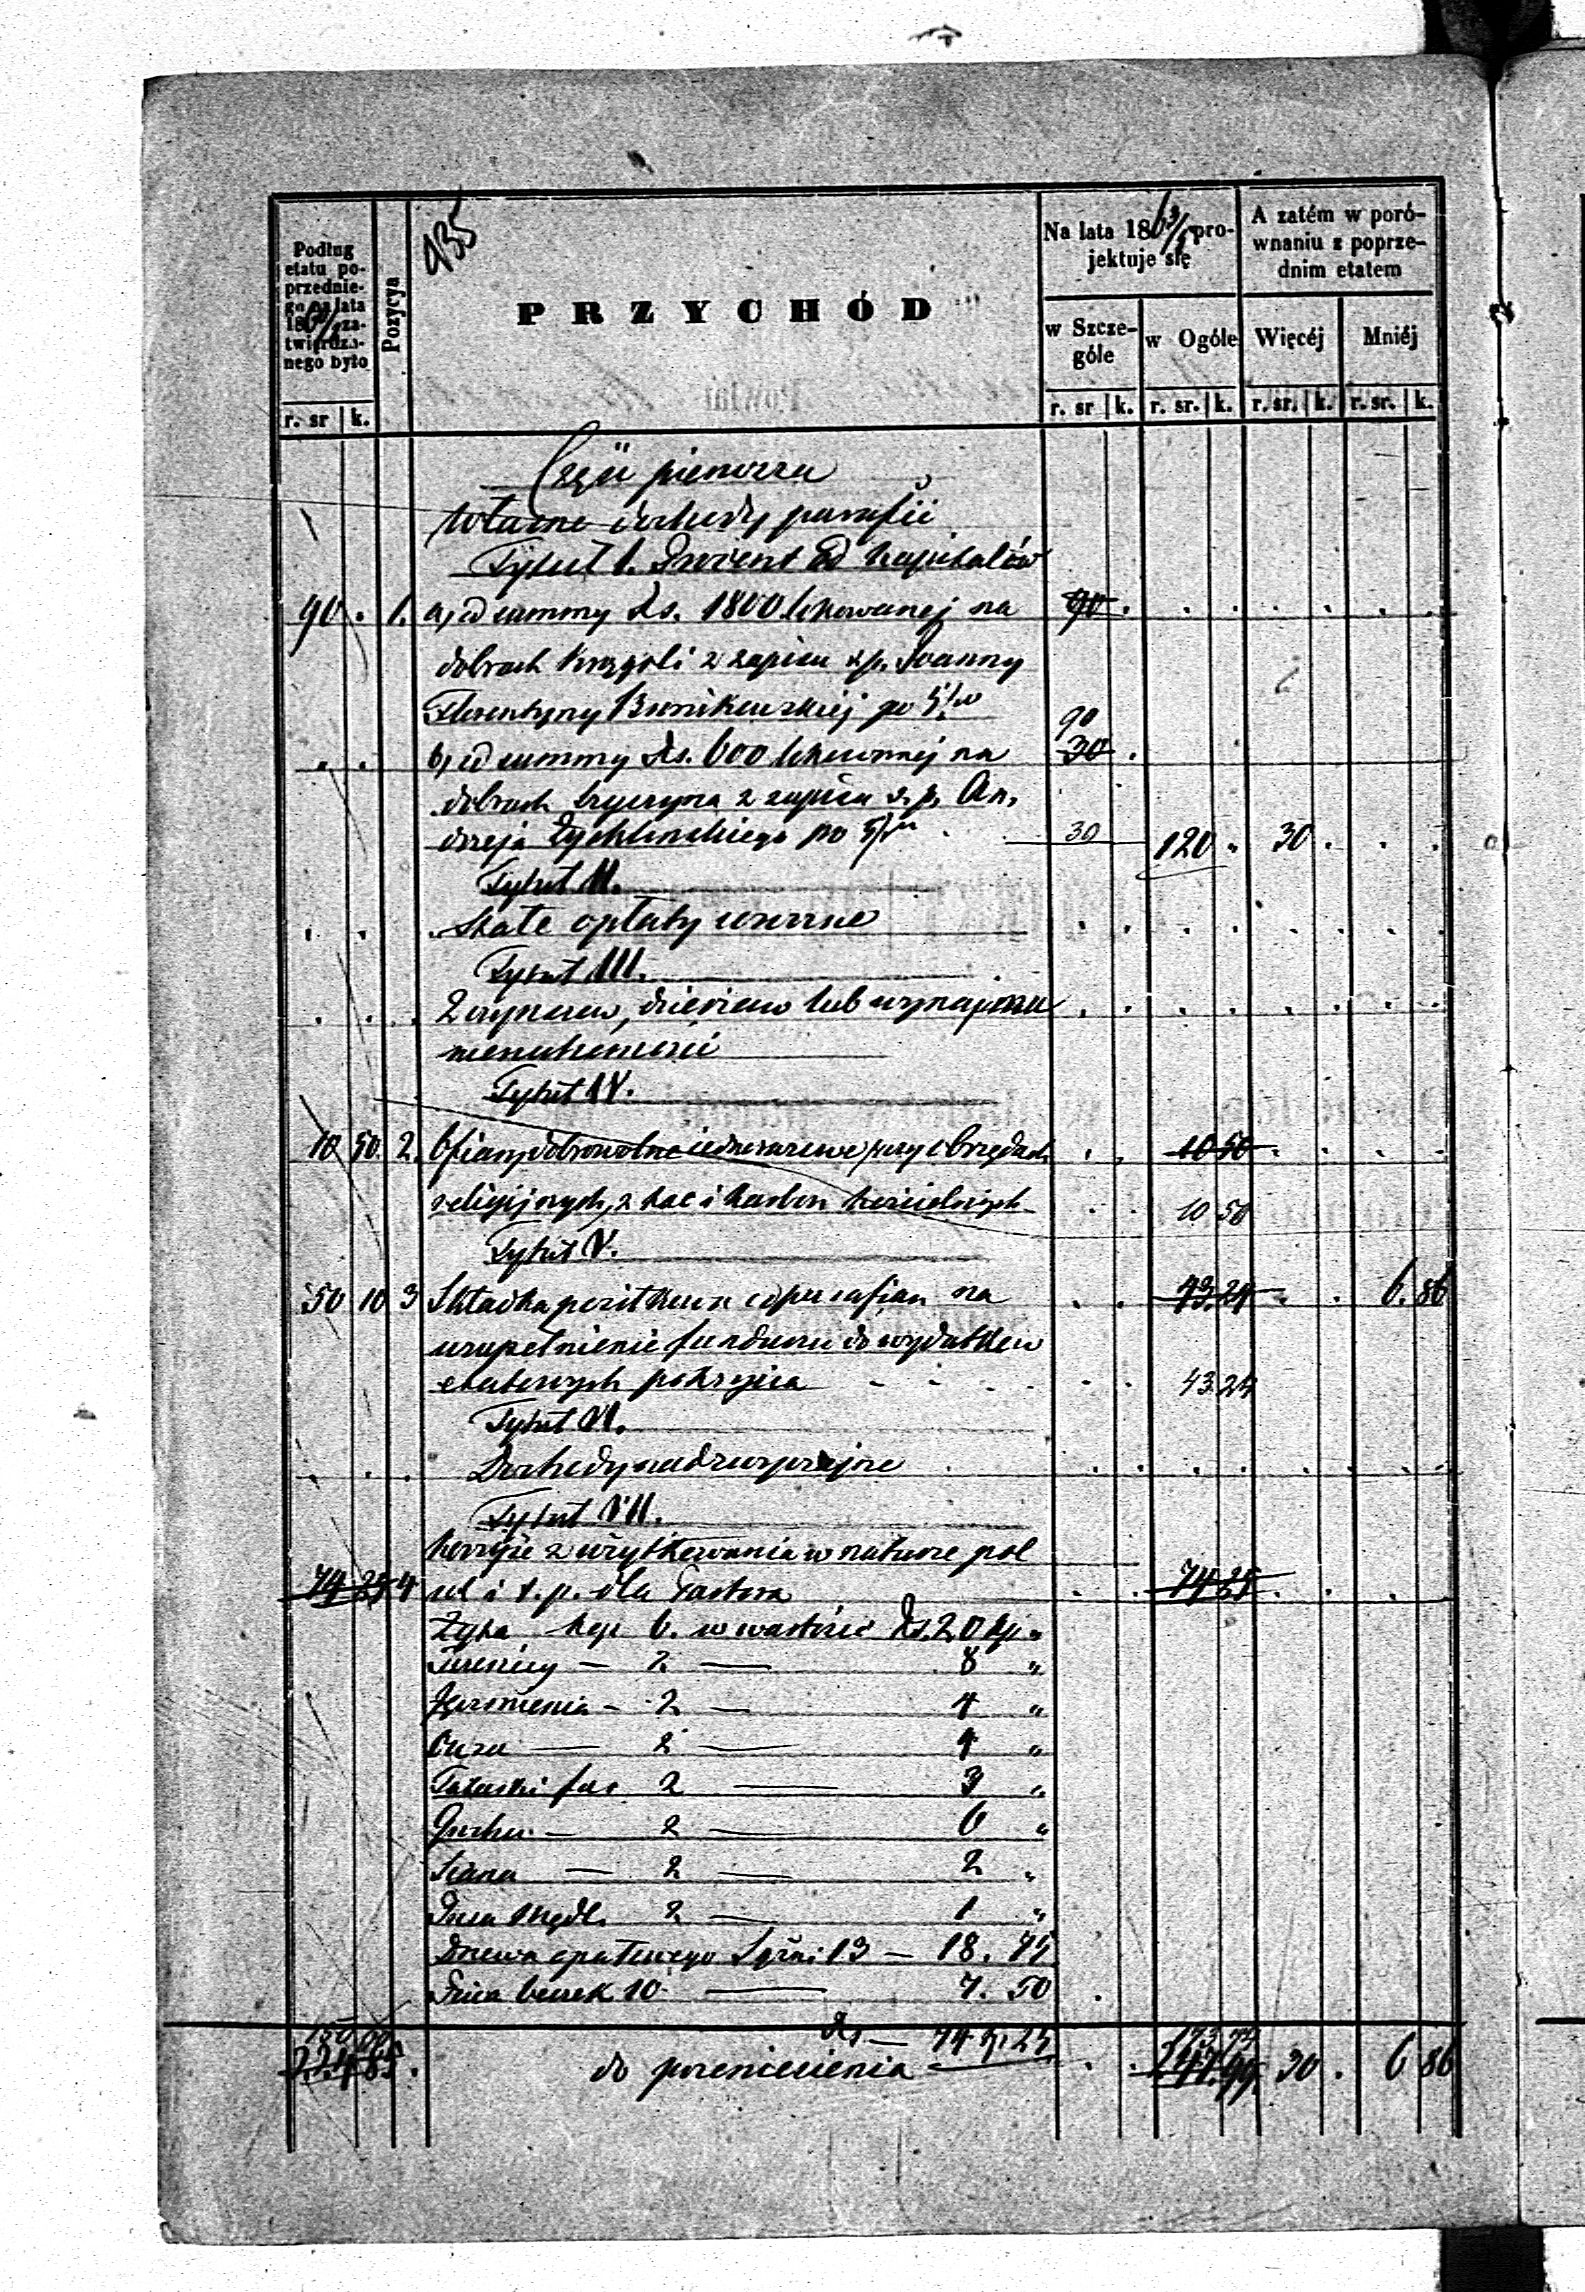 435
Podług etatu poprzedniego na lata 186 / zatwierdzonego było
Pozycya
PRZYCHÓD
Na lata 1863/5 projektuje się
A zatém w porównaniu z poprzednim etatem
w Szczególe
w Ogóle
Więcéj
Mniéj
r. sr k.
r. sr k. r. sr. k. r. sr. k. r. sr. k.
Część pierwsza
Własne dochody parafii
Tytuł I. Procent od kapitałów
90 . 1. a, od summy Rs. 1800 lokowanej na 90 .
dobrach z zapisu ś.p. Joanny
Florentyny po 5%
90
b, od summy Rs. 600 lokowanej na 30 .
dobrach z zapisu ś.p. An,
drzeja Żychlińskiego po 5% 30 120 " 30 .
Tytuł II.
Stałe opłaty wieczne
Tytuł III.
Z czynszów, dzierżaw lub wynajmu
nieruchomości
Tytuł IV.
10 50. 2. Ofiary dobrowolne jednorazowe przy obrzędach 10 50
religijnych, z tac i karbon kościelnych 10 50
Tytuł V.
50 10 3 Składka pozostałych od parafian na 43.24 6.86
uzupełnienie funduszu do wydatków
etatowych pokrycia 43.24
Tytuł VI.
Dochody nadzwyczajne
Tytuł VII.
Korzyść z użytkowania w naturze pól
74 25 4 ról i t.p. dla Pastora 74 25
Żyta kop 6. w wartości Rs. 20 kp "
Pszenicy — 2 — 8 "
Jęczmienia — 2 — 4 "
Owsa — 2 — 4 "
Tatarki fur 2 — 3 "
Grochu — 2 — 6 "
Siana — 2 — 2 "
2 — 1 "
Drzewa opałowego Sążni 13 — 18. 75
10 — 7. 50
Rs — 74 k. 25
150 60 173 74
224 85 . do przeniesienia 247.99. 30 . 6 86